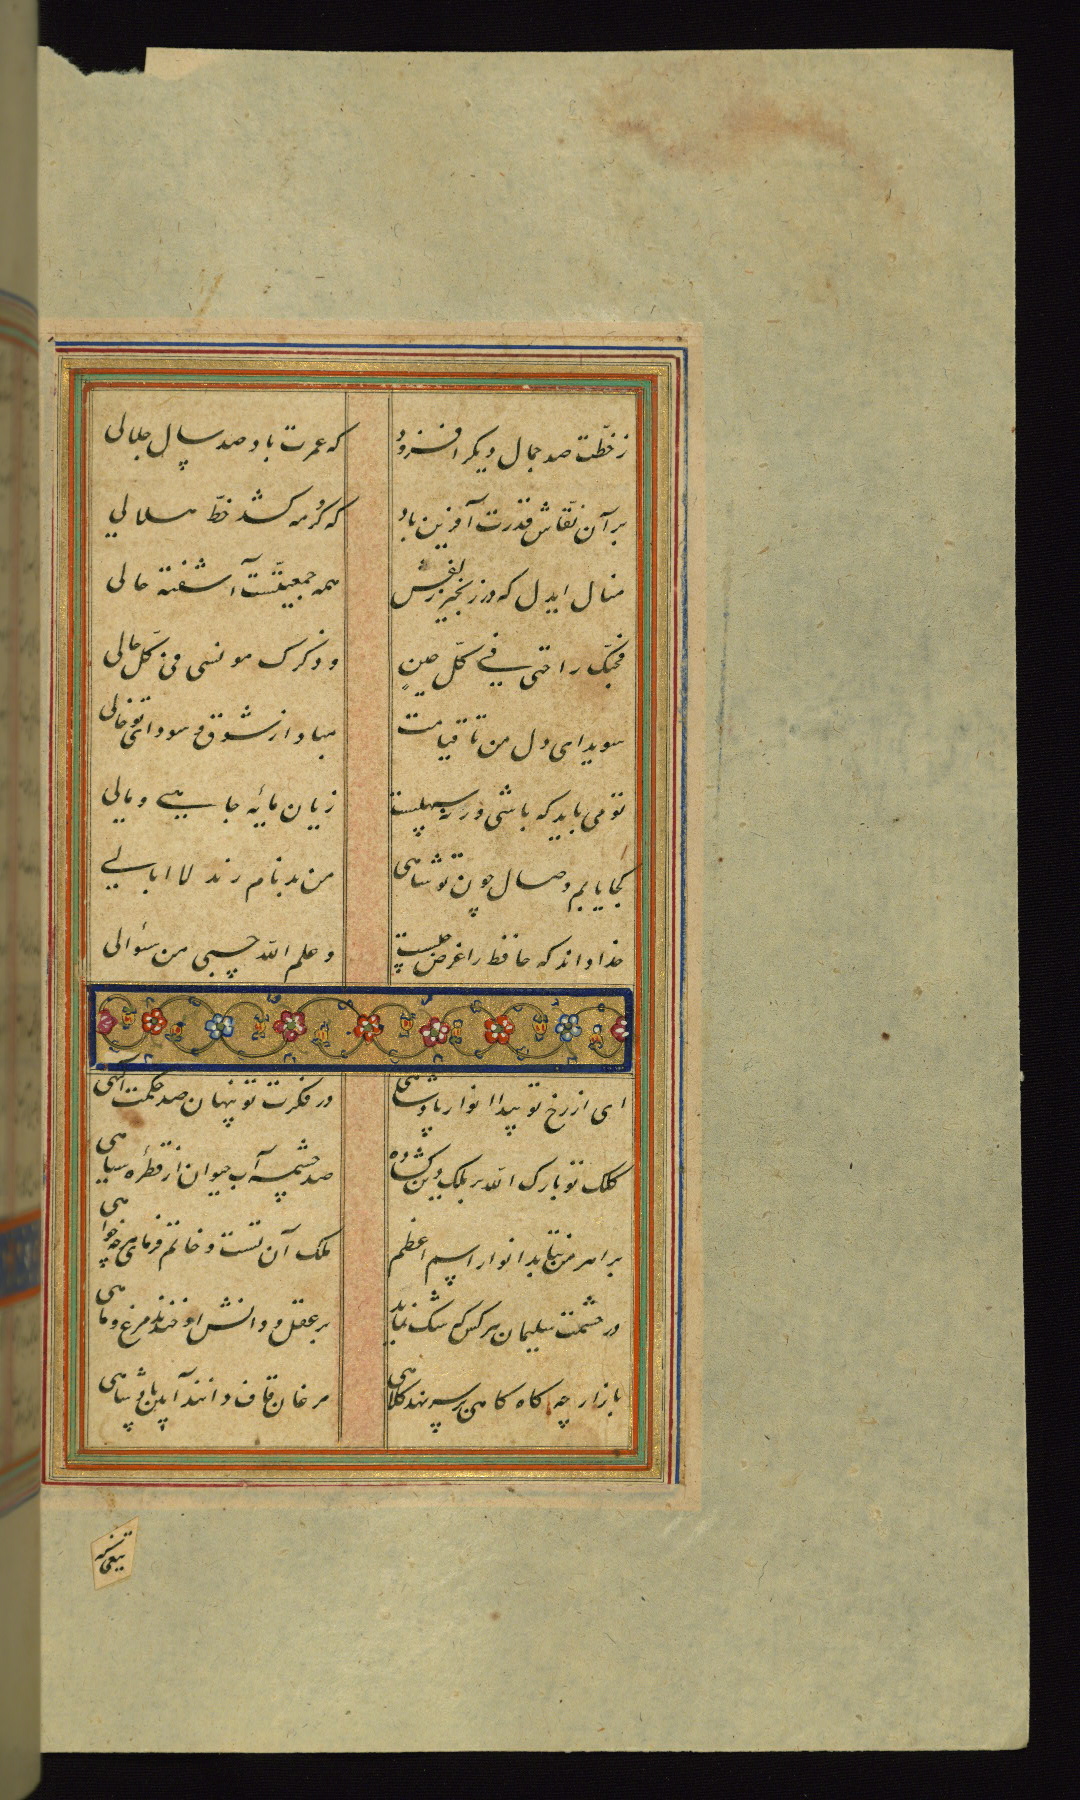 ز خطّت صد جمال دیگر افزود که عمرت باد صد سال جلالی
بر آن نقّاش قدرت آفرین باد که گرد مه کشد خطّ هلالی
منال ایدل که در زنجیر زلفش همه جمعیّتست آشفته حالی
فحبّک راحتی فی کلّ حینٍ و ذکرک مونسی فی کلّ حالی
سویدای دل من تا قیامت مباد از شوق و سودای تو خالی
تو می باید که باشی ورنه سهلست زیان مایه جاهی و مالی
کجا یابم وصال چون تو شاهی من بدنام رند لا ابالی
خدا داند که حافظ را غرض چیست و علم الله حسبی من سؤالی
ای از رخ تو پیدا انوار پادشاهی در فکرت تو پنهان صد حکمت الهی
کلک تو بارک الله بر ملک و دین گشاده صد چشمه آب حیوان از قطره سیاهی
بر اهرمن نتابد انوار اسم اعظم ملک آن تست و خاتم فرمای هرچه خواهی
در حشمت سلیمان هر کس که شک نماید بر عقل و دانش او خندند مرغ و ماهی
باز ار چه گاه گاهی بر سر نهد کلاهی مرغان قاف دانند آیین پادشاهی
تیغی که